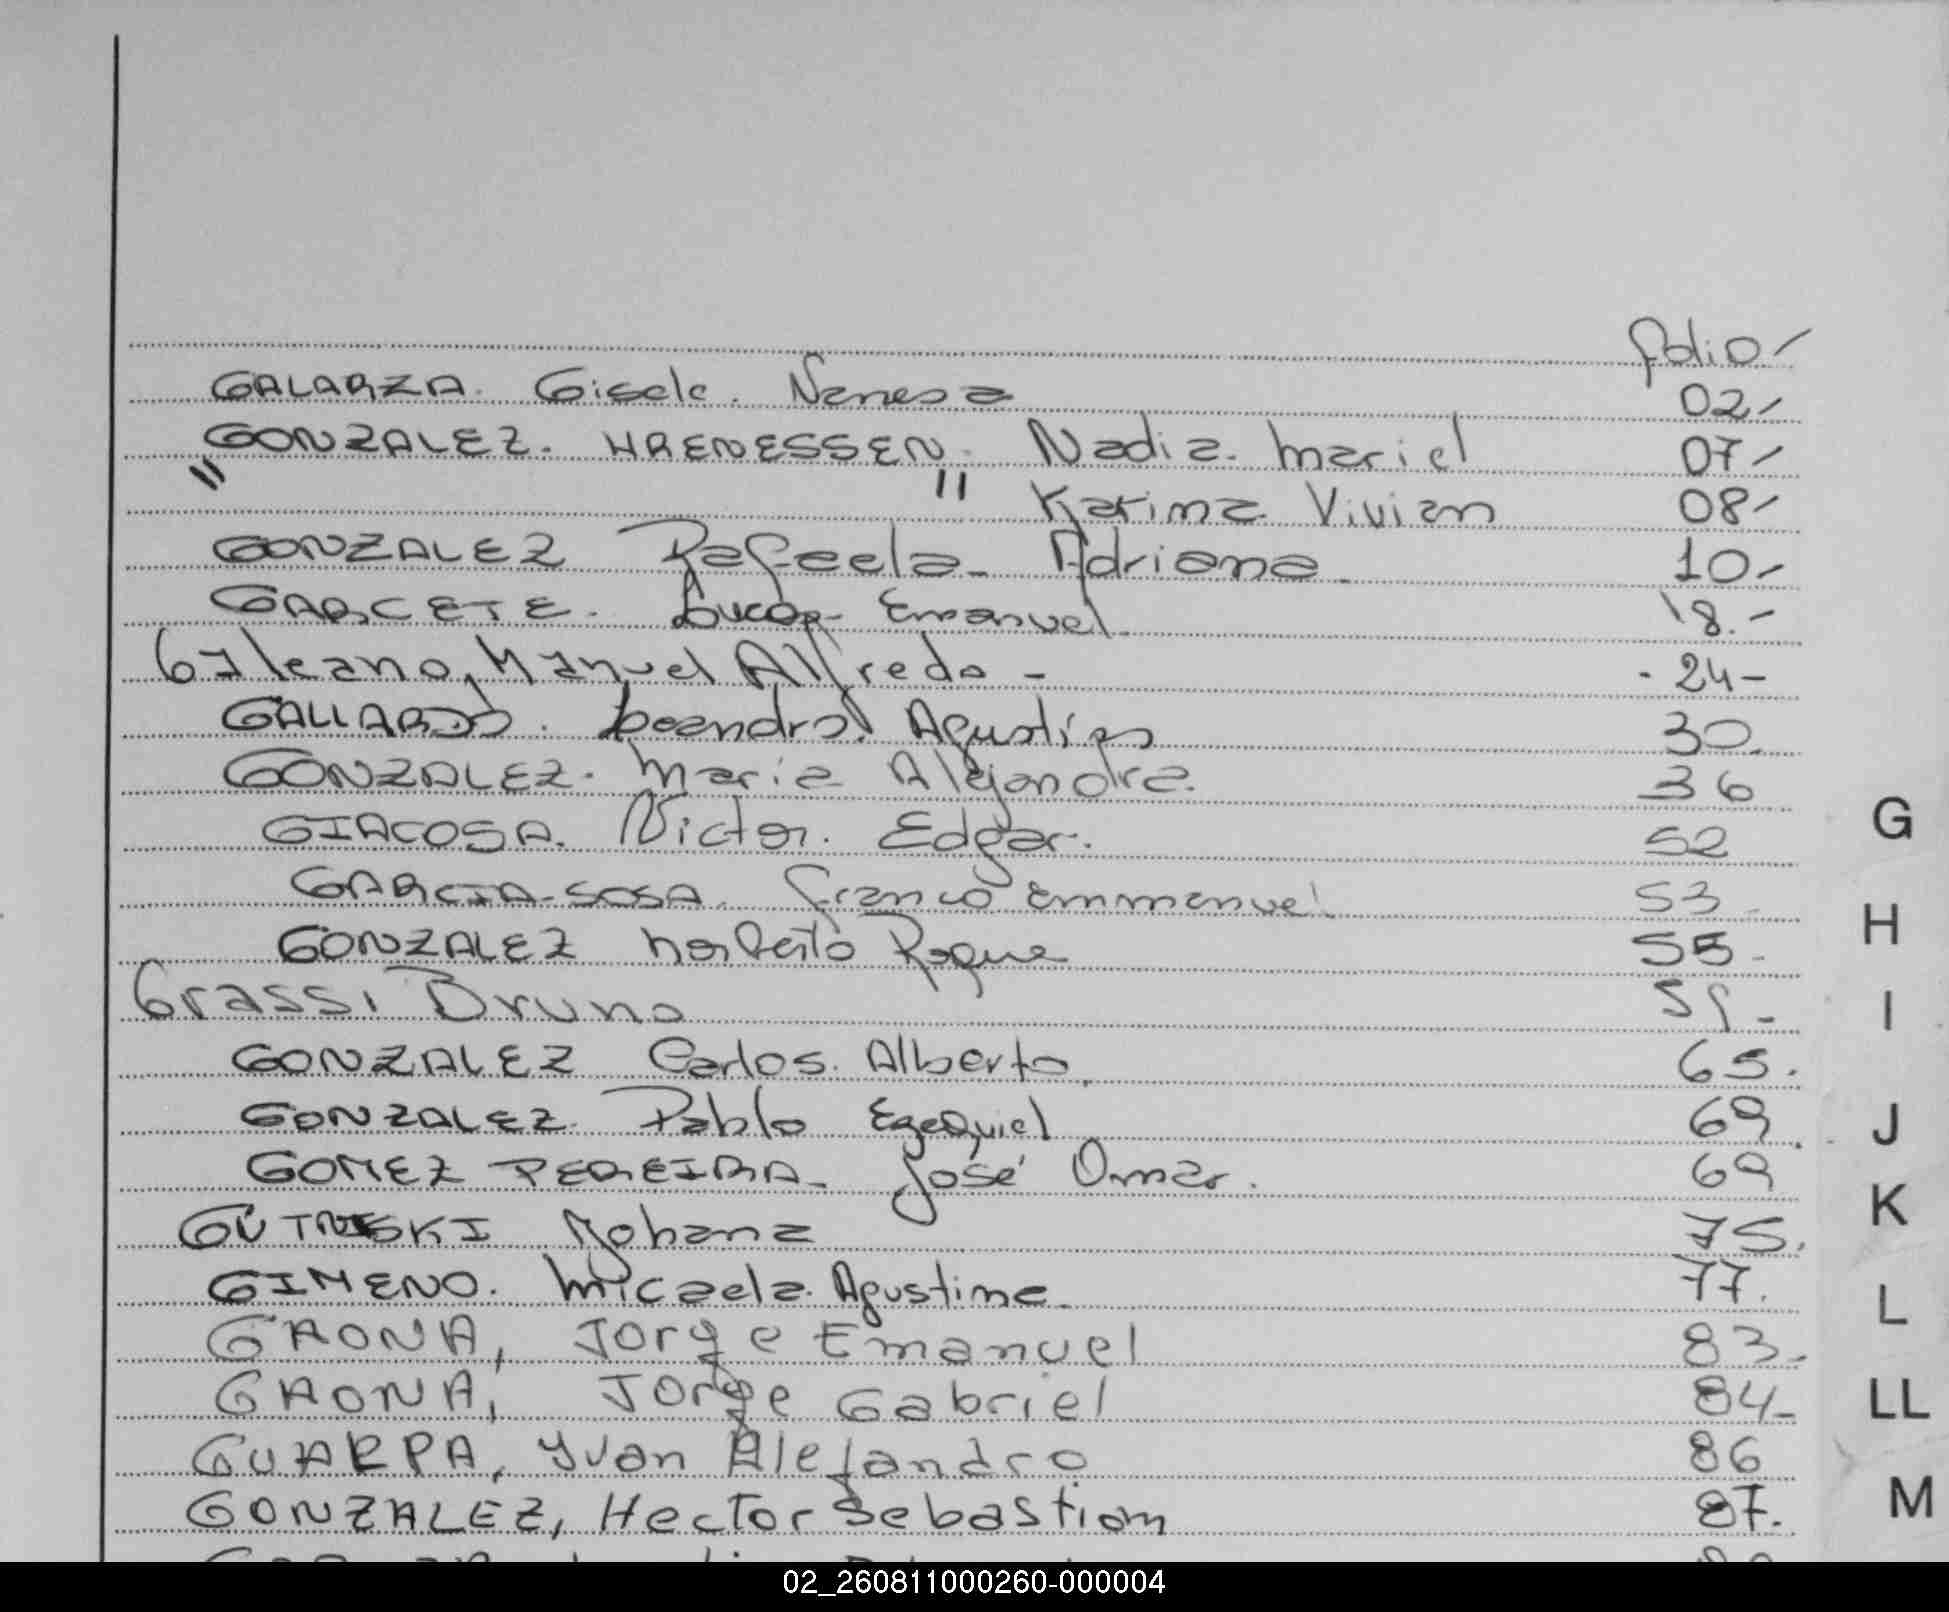 folio
GALARZA. Gisele. Vanesa 02
GONZALEZ. HRENESSEN. Nadia. Mariel 07
" " Karina Vivian 08
GONZALEZ Rafaela Adriana 10
GARCETE. Lucas Emanuel 18.
Galeano, Manuel Alfredo - 24
GALLARDO. Leandro. Agustín 30
GONZALEZ. Maria Alejandra. 36
GIACOSA. Victor. Edgar. 52
GARCIA-SOSA. Franco Emmanuel. 53
GONZALEZ Norberto Roque 55
Grassi Bruno
GONZALEZ Carlos. Alberto. 65.
GONZALEZ. Pablo Ezequiel 69
GOMEZ PEREIRA José Omar. 69
Johana 75.
GIMENO. Micaela. Agustina. 77.
GAONA, Jorge Emanuel 83
GAONA, Jorge Gabriel 84
Yvan Alejandro 86
GONZALEZ, Hector Sebastian 87.
G
H
I
J
K
L
LL
M
02_260811000260-000004